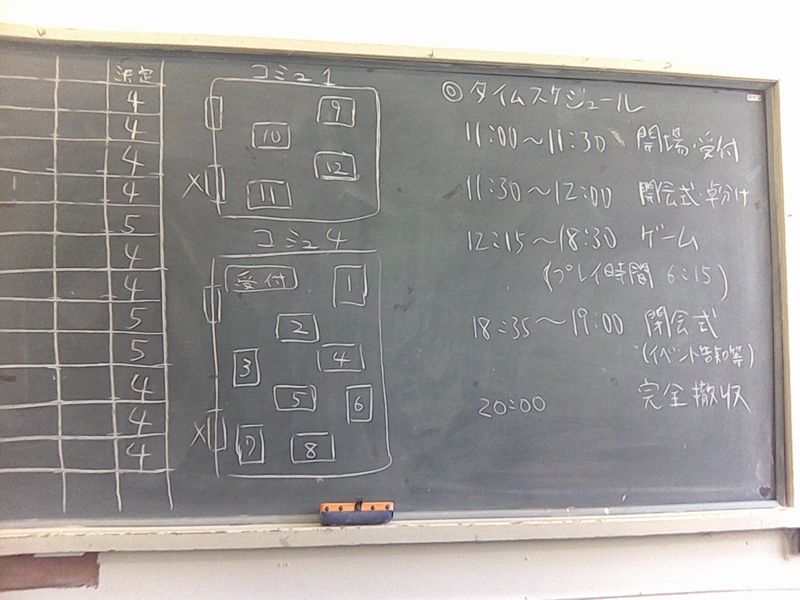 決定
4
4
4
4
5
4
4
5
5
4
4
4
コミュ1
9
10
12
11
X
コミュ4
受付
1
2
3
4
5
6
X
7
8
◎タイムスケジュール
11:00～11:30 開場・受付
11:30～12:00 開会式・卓分け
12:15～18:30 ゲーム
(プレイ時間 6:15)
18:35～19:00 閉会式
(イベント告知等)
20:00 完全撤収